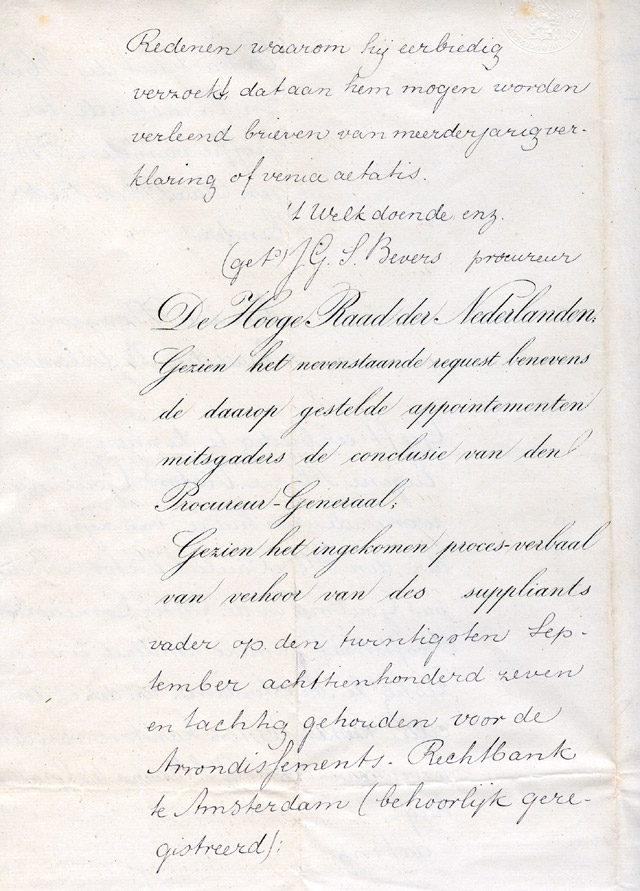 Redenen waarom hij eerbiedig
verzoekt, dat aan hem mogen worden
verleend brieven van meerderjarigver-
klaring of venia aetatis.
't Welk doende enz.
(get) J. G. S. Bevers procureur
De Hooge Raad der Nederlanden;
Gezien het nevenstaande request benevens
de daarop gestelde appointementen
mitsgaders de conclusie van den
Procureur-Generaal;
Gezien het ingekomen proces-verbaal
van verhoor van des suppliants
vader op den twintigsten Sep-
tember achttienhonderd zeven
en tachtig gehouden voor de
Arrondissements-Rechtbank
te Amsterdam (behoorlijk gere-
gistreerd);